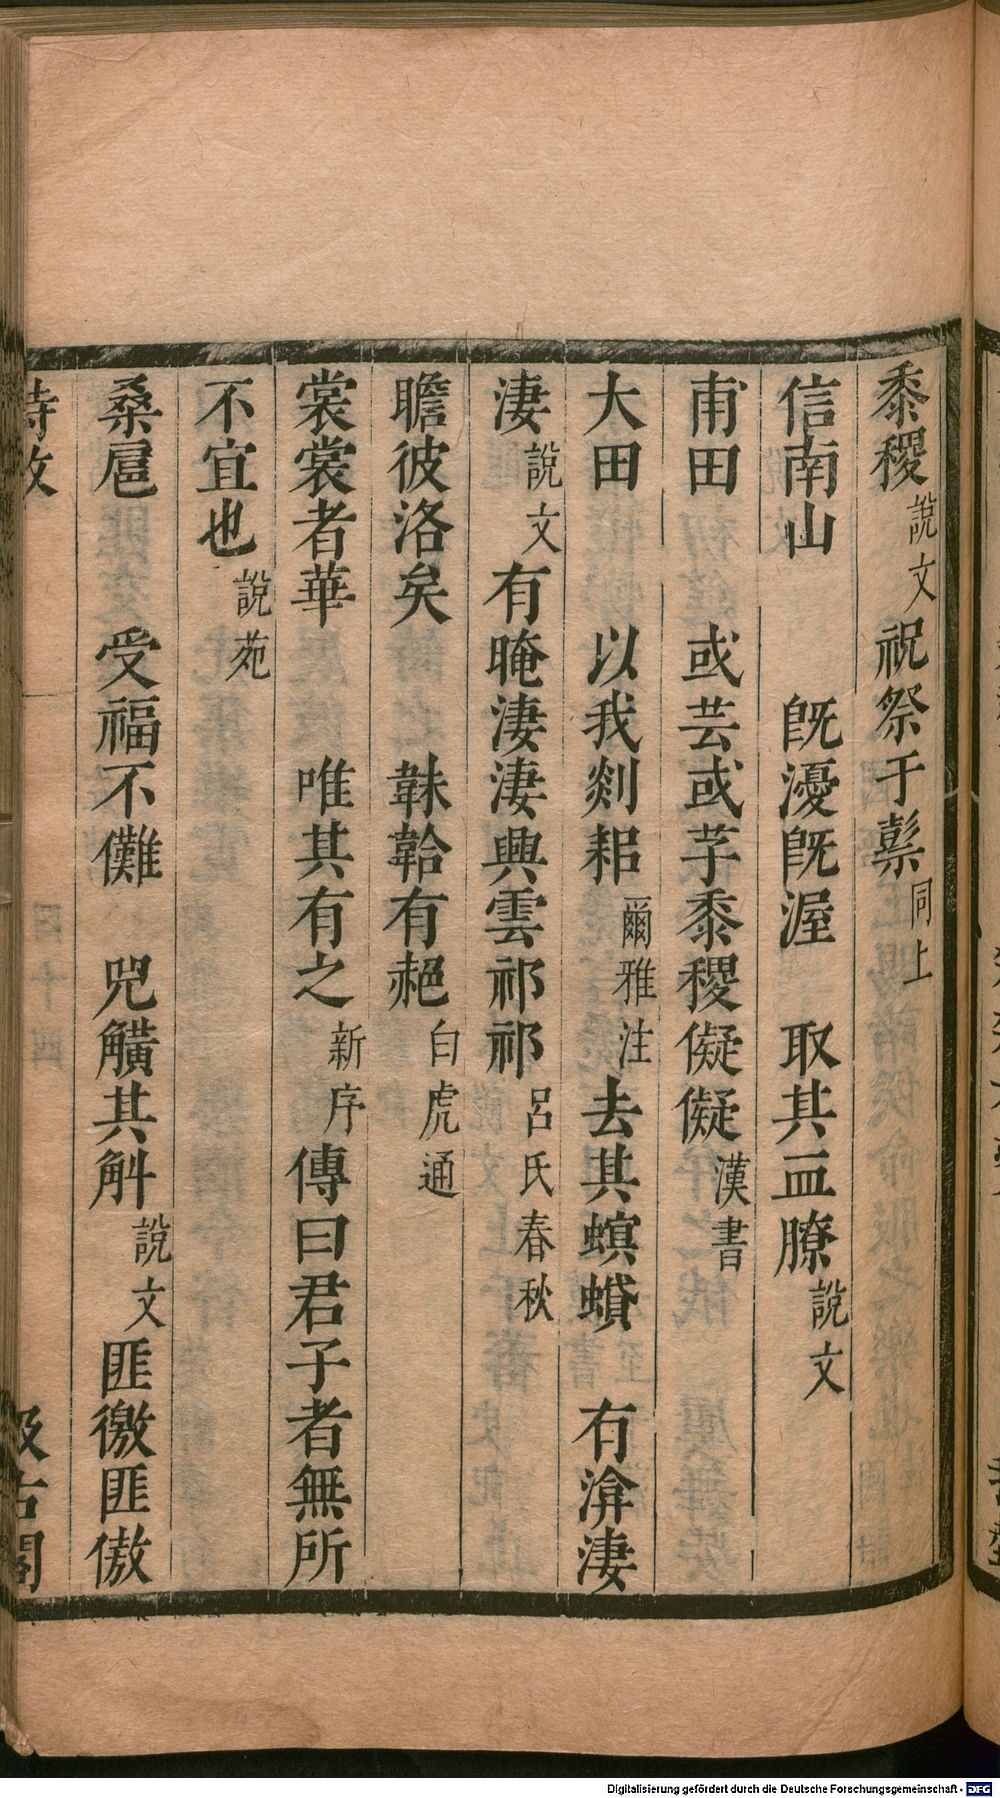 黍稷 說文 祝祭于𥛱 同上
信南山 旣瀀旣渥 取其血膫 說文
甫田 或芸或芓黍稷儗儗 漢書
大田 以我剡耜 爾雅注 去其螟蟘 有渰淒
淒 說文 有晻淒淒興雲祁祁 呂氏春秋
瞻彼洛矣 韎韐有赩 白虎通
裳裳者華 唯其有之 新序 傳曰君子者無所
不宜也 說苑
桑扈 受福不儺 兕觵其觓 說文 匪徼匪傲
詩攷 汲古閣
Digitalisierung gefördert durch die Deutsche Forschungsgemeinschaft - DFG